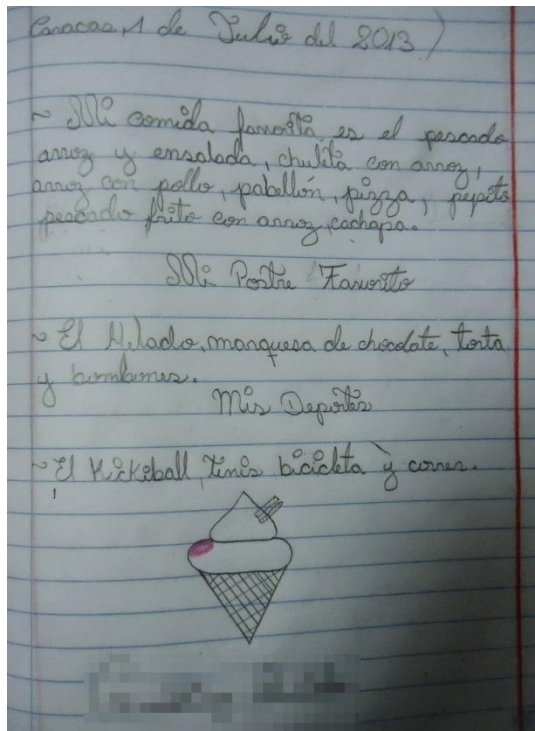 Caracas, 1 de Julio del 2013
~ Mi comida favorita es el pescado
arroz y ensalada, chulita con arroz,
arroz con pollo, pabellón, pizza, pepito
pescado frito con arroz, cachapa.
Mi Postre Favorito
~ El Helado, marquesa de chocolate, torta
y bombones.
Mis Deportes
~ El Kickeball, tinis bicicleta y correr.